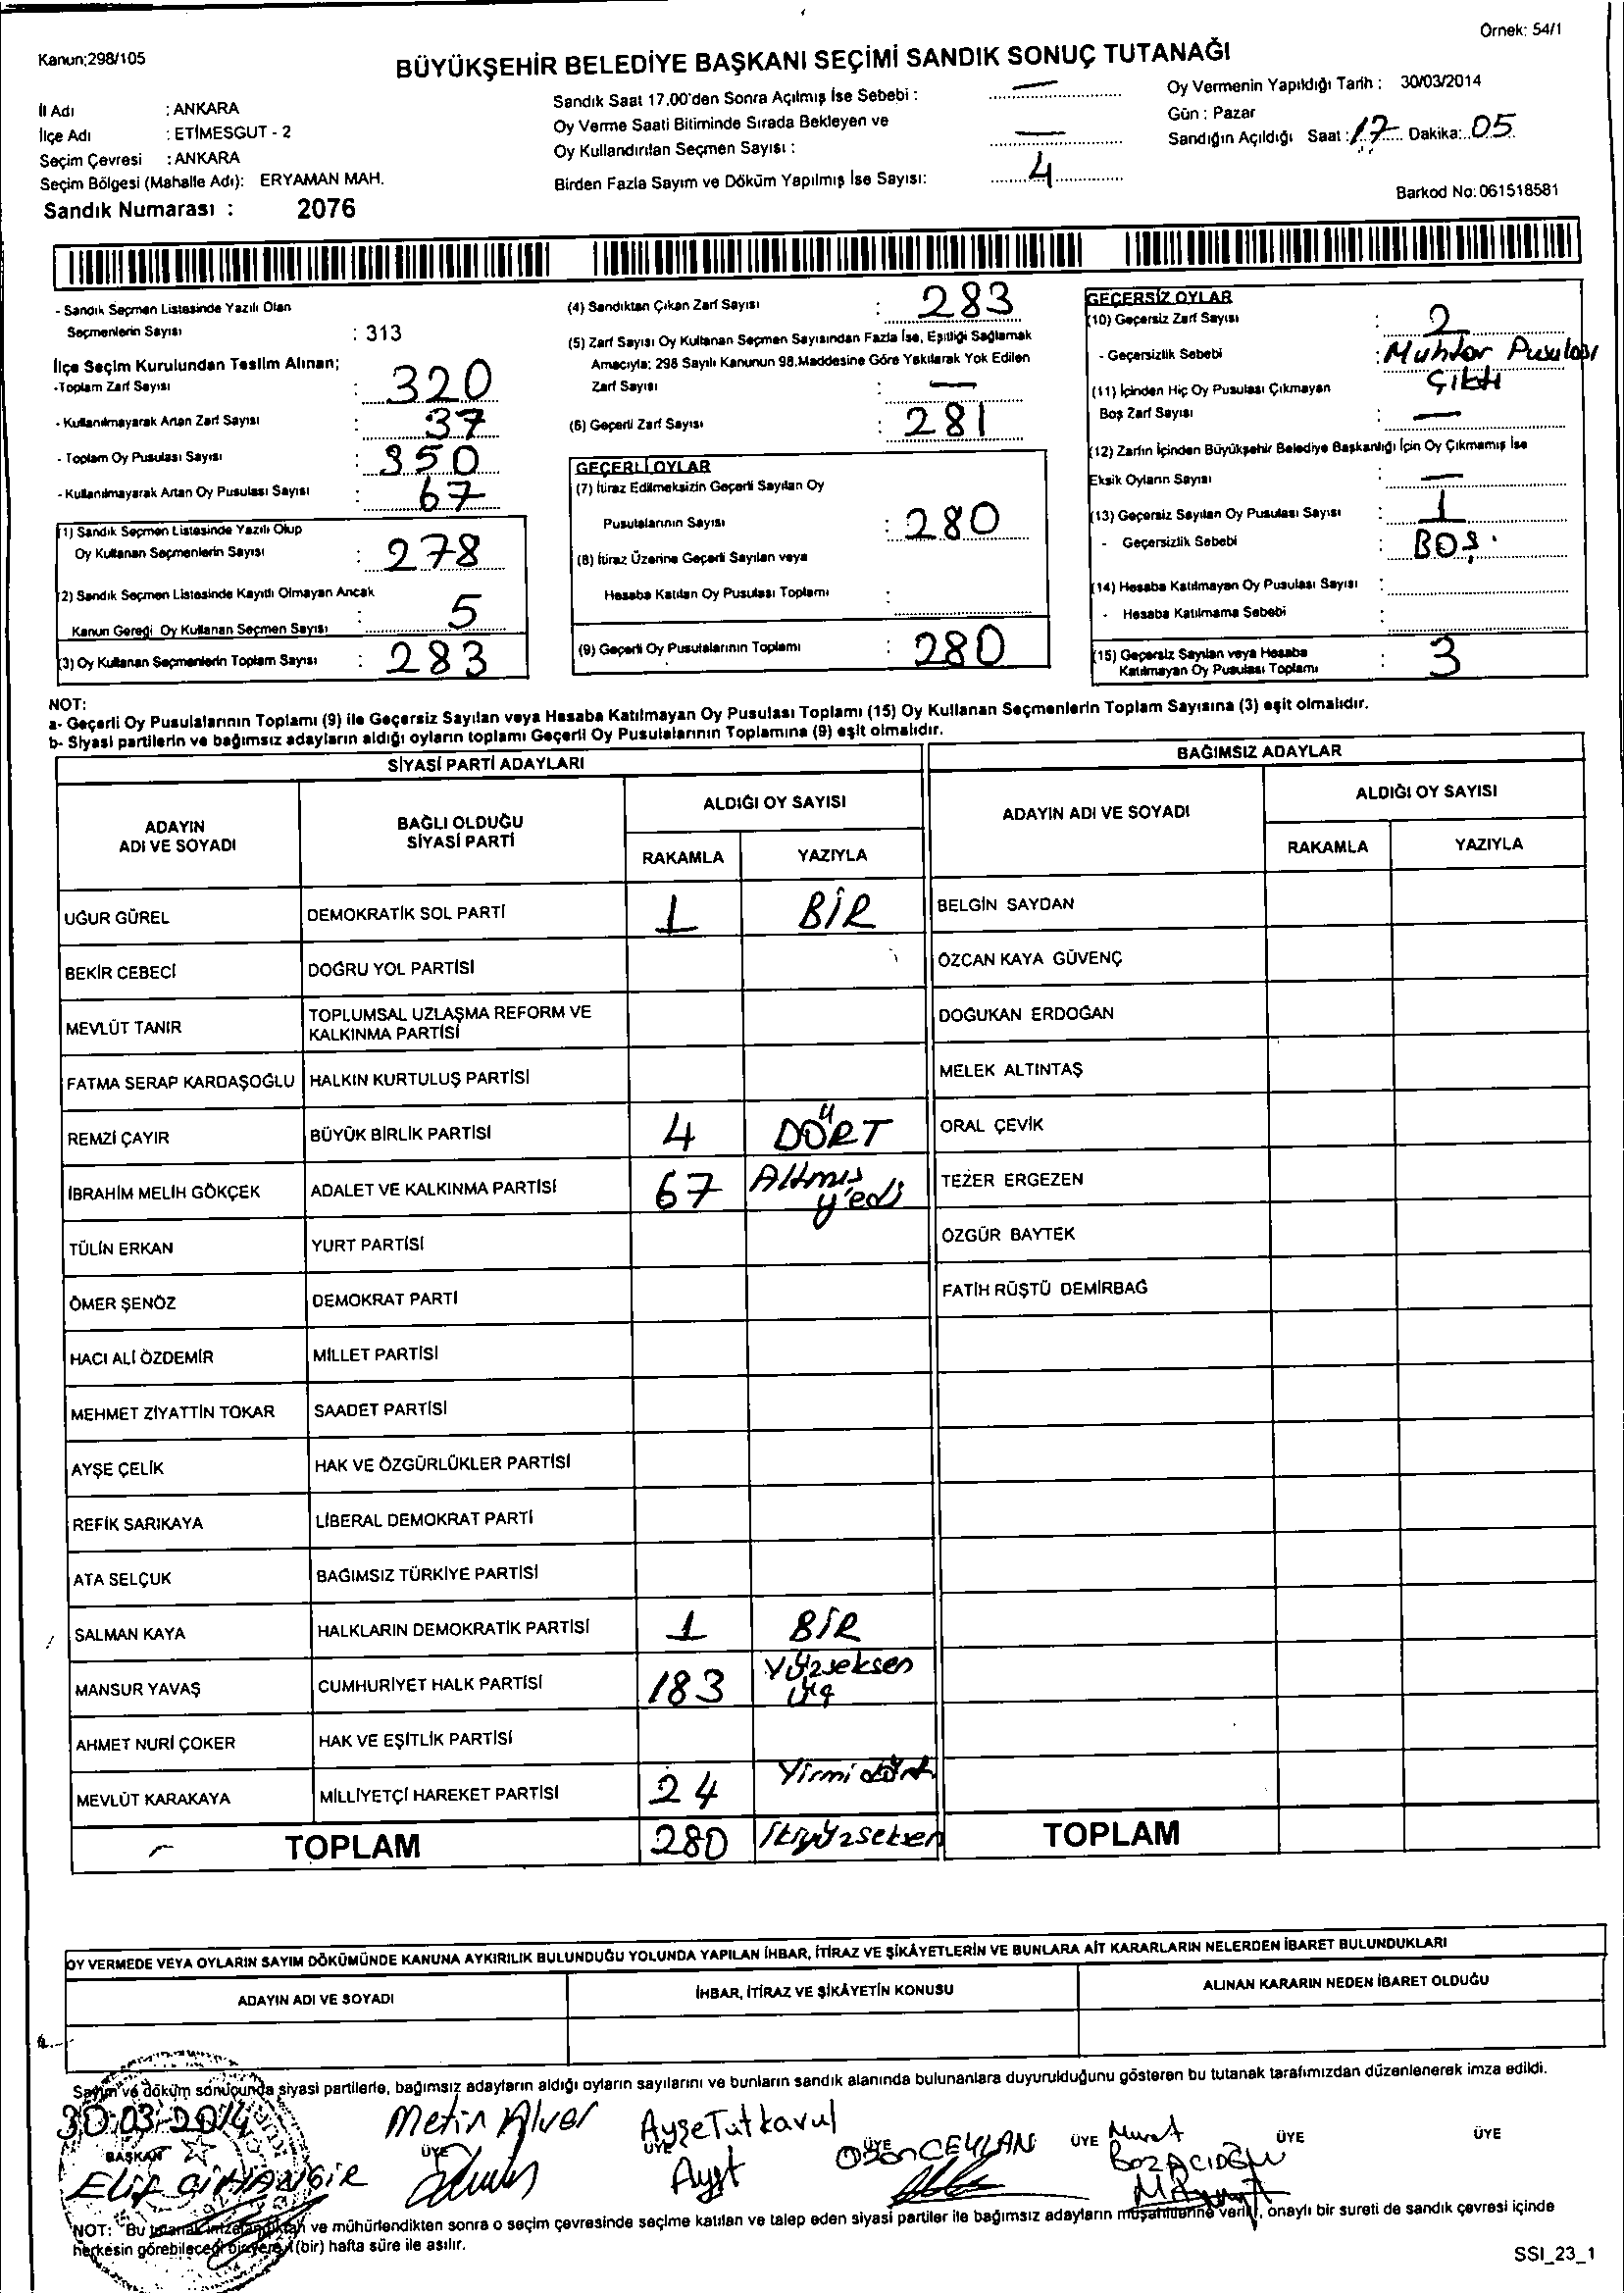 Örnek: 54/1
Kanun;298/105
BÜYÜKŞEHİR BELEDİYE BAŞKANI SEÇİMİ SANDIK SONUÇ TUTANAĞI
İl Adı : ANKARA
İlçe Adı : ETİMESGUT - 2
Seçim Çevresi : ANKARA
Seçim Bölgesi (Mahalle Adı): ERYAMAN MAH.
Sandık Numarası : 2076
Sandık Saat 17.00'den Sonra Açılmış İse Sebebi : —
Oy Verme Saati Bitiminde Sırada Bekleyen ve
Oy Kullandırılan Seçmen Sayısı : —
Birden Fazla Sayım ve Döküm Yapılmış İse Sayısı: 4
Oy Vermenin Yapıldığı Tarih : 30/03/2014
Gün : Pazar
Sandığın Açıldığı Saat : 17 Dakika: 05
Barkod No: 061518581
- Sandık Seçmen Listesinde Yazılı Olan
Seçmenlerin Sayısı : 313
İlçe Seçim Kurulundan Teslim Alınan;
-Toplam Zarf Sayısı : 320
- Kullanılmayarak Artan Zarf Sayısı : 37
- Toplam Oy Pusulası Sayısı : 350
- Kullanılmayarak Artan Oy Pusulası Sayısı : 67
(1) Sandık Seçmen Listesinde Yazılı Olup
Oy Kullanan Seçmenlerin Sayısı : 278
(2) Sandık Seçmen Listesinde Kayıtlı Olmayan Ancak
Kanun Gereği Oy Kullanan Seçmen Sayısı : 5
(3) Oy Kullanan Seçmenlerin Toplam Sayısı : 283
(4) Sandıktan Çıkan Zarf Sayısı : 283
(5) Zarf Sayısı Oy Kullanan Seçmen Sayısından Fazla İse, Eşitliği Sağlamak
Amacıyla; 298 Sayılı Kanunun 98.Maddesine Göre Yakılarak Yok Edilen
Zarf Sayısı : —
(6) Geçerli Zarf Sayısı : 281
GEÇERLİ OYLAR
(7) İtiraz Edilmeksizin Geçerli Sayılan Oy
Pusulalarının Sayısı : 280
(8) İtiraz Üzerine Geçerli Sayılan veya
Hesaba Katılan Oy Pusulası Toplamı :
(9) Geçerli Oy Pusulalarının Toplamı : 280
GEÇERSİZ OYLAR
(10) Geçersiz Zarf Sayısı : 2
- Geçersizlik Sebebi : Muhtar Pusulası
Çıktı
(11) İçinden Hiç Oy Pusulası Çıkmayan
Boş Zarf Sayısı : —
(12) Zarfın İçinden Büyükşehir Belediye Başkanlığı İçin Oy Çıkmamış İse
Eksik Oyların Sayısı : —
(13) Geçersiz Sayılan Oy Pusulası Sayısı : 1
- Geçersizlik Sebebi : BOŞ.
(14) Hesaba Katılmayan Oy Pusulası Sayısı :
- Hesaba Katılmama Sebebi :
(15) Geçersiz Sayılan veya Hesaba
Katılmayan Oy Pusulası Toplamı : 3
NOT:
a- Geçerli Oy Pusulalarının Toplamı (9) ile Geçersiz Sayılan veya Hesaba Katılmayan Oy Pusulası Toplamı (15) Oy Kullanan Seçmenlerin Toplam Sayısına (3) eşit olmalıdır.
b- Siyasi partilerin ve bağımsız adayların aldığı oyların toplamı Geçerli Oy Pusulalarının Toplamına (9) eşit olmalıdır.
SİYASİ PARTİ ADAYLARI
ADAYIN ADI VE SOYADI BAĞLI OLDUĞU SİYASİ PARTİ ALDIĞI OY SAYISI
RAKAMLA YAZIYLA
UĞUR GÜREL DEMOKRATİK SOL PARTİ 1 BİR
BEKİR CEBECİ DOĞRU YOL PARTİSİ
MEVLÜT TANIR TOPLUMSAL UZLAŞMA REFORM VE KALKINMA PARTİSİ
FATMA SERAP KARDAŞOĞLU HALKIN KURTULUŞ PARTİSİ
REMZİ ÇAYIR BÜYÜK BİRLİK PARTİSİ 4 DÖRT
İBRAHİM MELİH GÖKÇEK ADALET VE KALKINMA PARTİSİ 67 Altmış y'edi
TÜLİN ERKAN YURT PARTİSİ
ÖMER ŞENÖZ DEMOKRAT PARTİ
HACI ALİ ÖZDEMİR MİLLET PARTİSİ
MEHMET ZİYATTİN TOKAR SAADET PARTİSİ
AYŞE ÇELİK HAK VE ÖZGÜRLÜKLER PARTİSİ
REFİK SARIKAYA LİBERAL DEMOKRAT PARTİ
ATA SELÇUK BAĞIMSIZ TÜRKİYE PARTİSİ
SALMAN KAYA HALKLARIN DEMOKRATİK PARTİSİ 1 BİR
MANSUR YAVAŞ CUMHURİYET HALK PARTİSİ 183 Yüzseksen üç
AHMET NURİ ÇOKER HAK VE EŞİTLİK PARTİSİ
MEVLÜT KARAKAYA MİLLİYETÇİ HAREKET PARTİSİ 24 Yirmi dört
TOPLAM 280 İkiyüzseksen
BAĞIMSIZ ADAYLAR
ADAYIN ADI VE SOYADI ALDIĞI OY SAYISI
RAKAMLA YAZIYLA
BELGİN SAYDAN
ÖZCAN KAYA GÜVENÇ
DOĞUKAN ERDOĞAN
MELEK ALTINTAŞ
ORAL ÇEVİK
TEZER ERGEZEN
ÖZGÜR BAYTEK
FATİH RÜŞTÜ DEMİRBAĞ
TOPLAM
OY VERMEDE VEYA OYLARIN SAYIM DÖKÜMÜNDE KANUNA AYKIRILIK BULUNDUĞU YOLUNDA YAPILAN İHBAR, İTİRAZ VE ŞİKÂYETLERİN VE BUNLARA AİT KARARLARIN NELERDEN İBARET BULUNDUKLARI
ADAYIN ADI VE SOYADI İHBAR, İTİRAZ VE ŞİKÂYETİN KONUSU ALINAN KARARIN NEDEN İBARET OLDUĞU
Sayım ve döküm sonucunda siyasi partilerle, bağımsız adayların aldığı oyların sayılarını ve bunların sandık alanında bulunanlara duyurulduğunu gösteren bu tutanak tarafımızdan düzenlenerek imza edildi.
30.03.2014
BAŞKAN ÜYE ÜYE ÜYE ÜYE ÜYE ÜYE
Elif CİHANGİR Metin Alver Ayşe Tutkavul CEYLAN Murat BOZACIOĞLU
NOT: Bu tutanak imzalandıktan ve mühürlendikten sonra o seçim çevresinde seçime katılan ve talep eden siyasi partiler ile bağımsız adayların müşahitlerine verilir, onaylı bir sureti de sandık çevresi içinde
herkesin görebileceği bir yere (bir) hafta süre ile asılır.
SSI_23_1